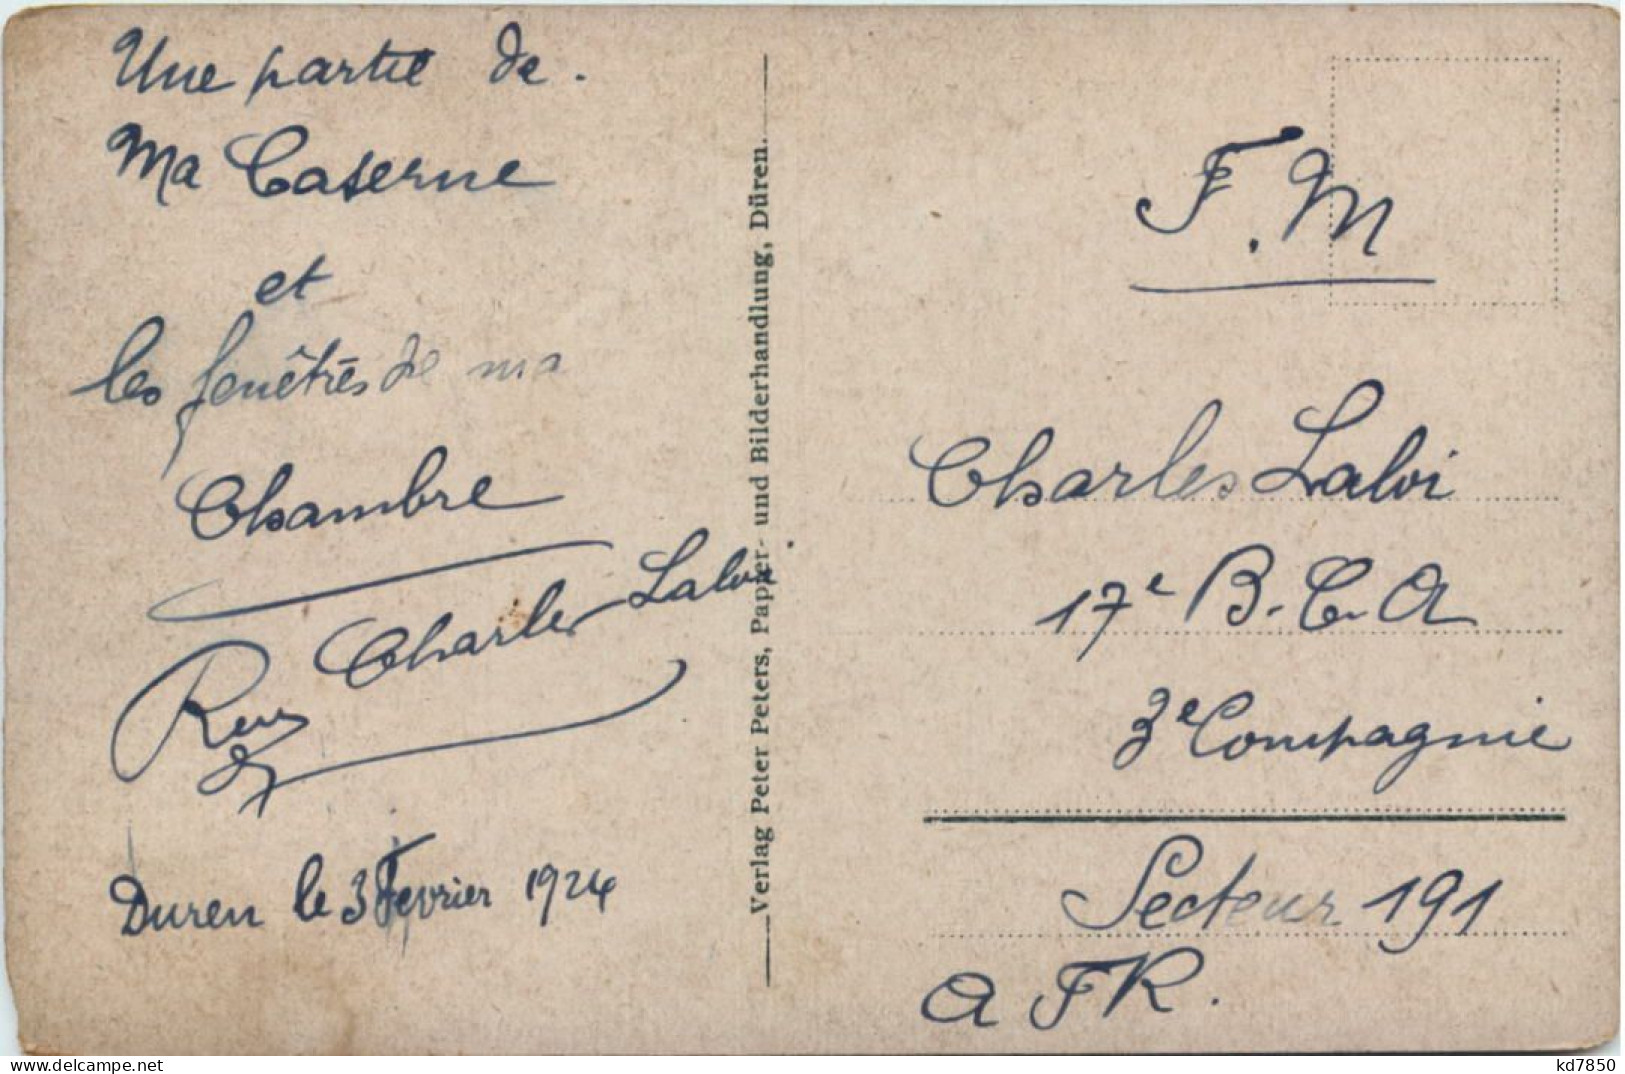 Une partie de.
Ma Caserne
et
les fenêtrés de ma
Chambre
Charles Lalvi
Duren le 3 Fevrier 1924
Verlag Peter Peters, Papier- und Bilderhandlung, Düren.
F.M
Charles Lalvi
17e B.C.A
3e Compagnie
Secteur 191
A FR.
kd7850